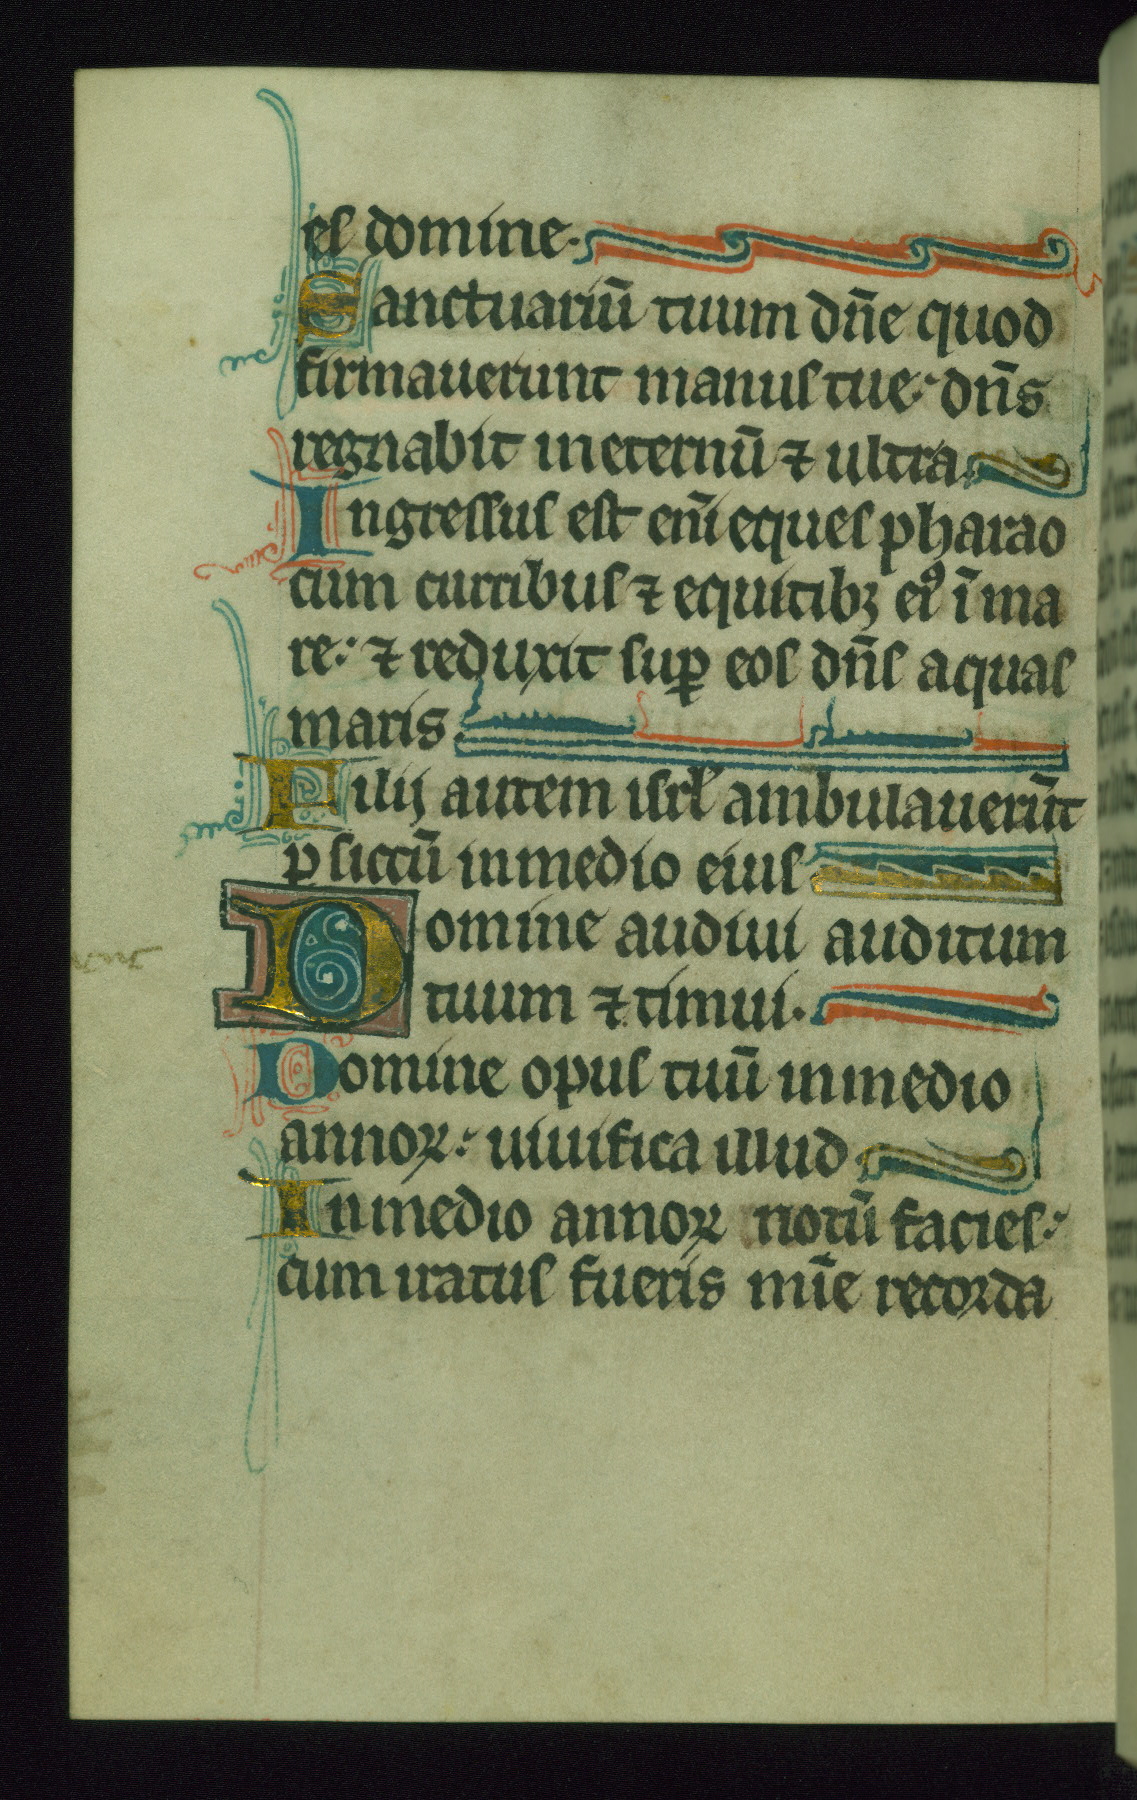 es domine.
Sanctuariū tuum dn̄e quod
firmauerunt manus tue. dn̄s
regnabit in eternū ⁊ ultra.
Ingressus est eni᷈ eques pharao
cum curribus ⁊ equitibꝫ eiꝰ ī ma
re. ⁊ reduxit suꝑ eos dn̄s aquas
maris.
Filij autem isrl̄ ambulauerūt
ꝑ siccū in medio eius
Domine audiui auditum
tuum ⁊ timui.
Domine opus tuū in medio
annoꝝ. uiuifica illud
In medio annoꝝ notū facies.
cum iratus fueris mīe recorda